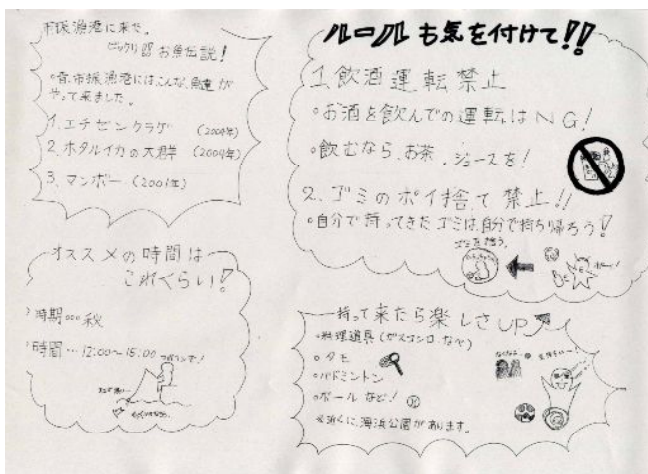 市振漁港に来た。
ビックリ お魚伝説!
昔、市振漁港には、こんな魚達が
やって来ました。
1. エチゼンクラゲ (2004年)
2. ホタルイカの大群 (2004年)
3. マンボー (2001年)
オススメの時間は
これぐらい!
時期…秋
時間…12:00~15:00
ルールも気を付けて!!
1. 飲酒運転禁止
・お酒を飲んでの運転はNG!
・飲むなら、お茶、ジュースを!
2. ゴミのポイ捨て禁止!!
・自分で持ってきたゴミは、自分で持ち帰ろう!
ゴミを拾う。
持って来たら楽しさUP
・料理道具 (ガスコンロ、なべ)
・タモ
・バドミントン
・ボールなど!
近くに海浜公園があります。